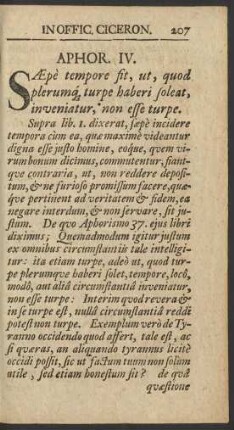 IN OFFIC. CICERON. 207
APHOR. IV.
SÆpè tempore fit, ut, quod
plerumq́; turpe haberi soleat,
inveniatur, non esse turpe.
Supra lib. 1. dixerat, sæpè incidere
tempora cùm ea, quæ maximè videantur
digna esse justo homine, eoque, quem vi-
rum bonum dicimus, commutentur, fiant-
que contraria, ut, non reddere deposi-
tum, & ne furioso promissum facere, quæ-
que pertinent ad veritatem & fidem, ea
negare interdum, & non servare, sit ju-
stum. De qvo Aphorismo 37. ejus libri
diximus; Quemadmodum igitur justum
ex omnibus circumstantiis tale intelligi-
tur: ita etiam turpe, adeò ut, quod tur-
pe plerumque haberi solet, tempore, locô,
modô, aut aliâ circumstantiâ inveniatur,
non esse turpe: Interim qvod revera &
in se turpe est, nullâ circumstantiâ reddi
potest non turpe. Exemplum verò de Ty-
ranno occidendo quod affert, tale est, ac
si quæras, an aliquando tyrannus licitè
occidi possit, sic ut factum tuum non solùm
utile, sed etiam honestum sit? de quâ
quæstione